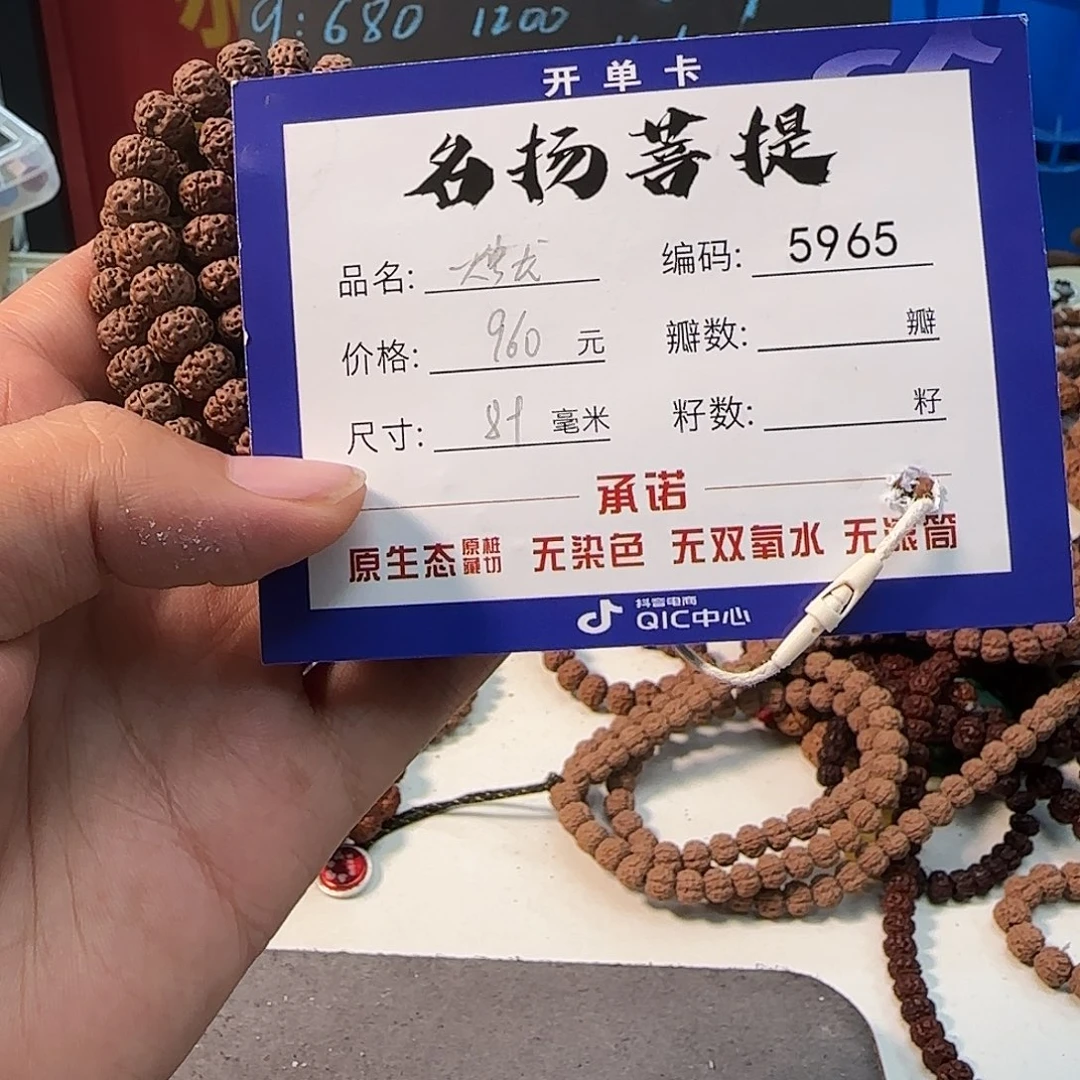 9:680 1200
开单卡
名扬菩提
品名: 编码: 5965
价格: 960 元 瓣数: 瓣
尺寸: 毫米 籽数: 籽
承诺
原生态 原桩藏切 无染色 无双氧水 无滚筒
抖音电商
QIC中心